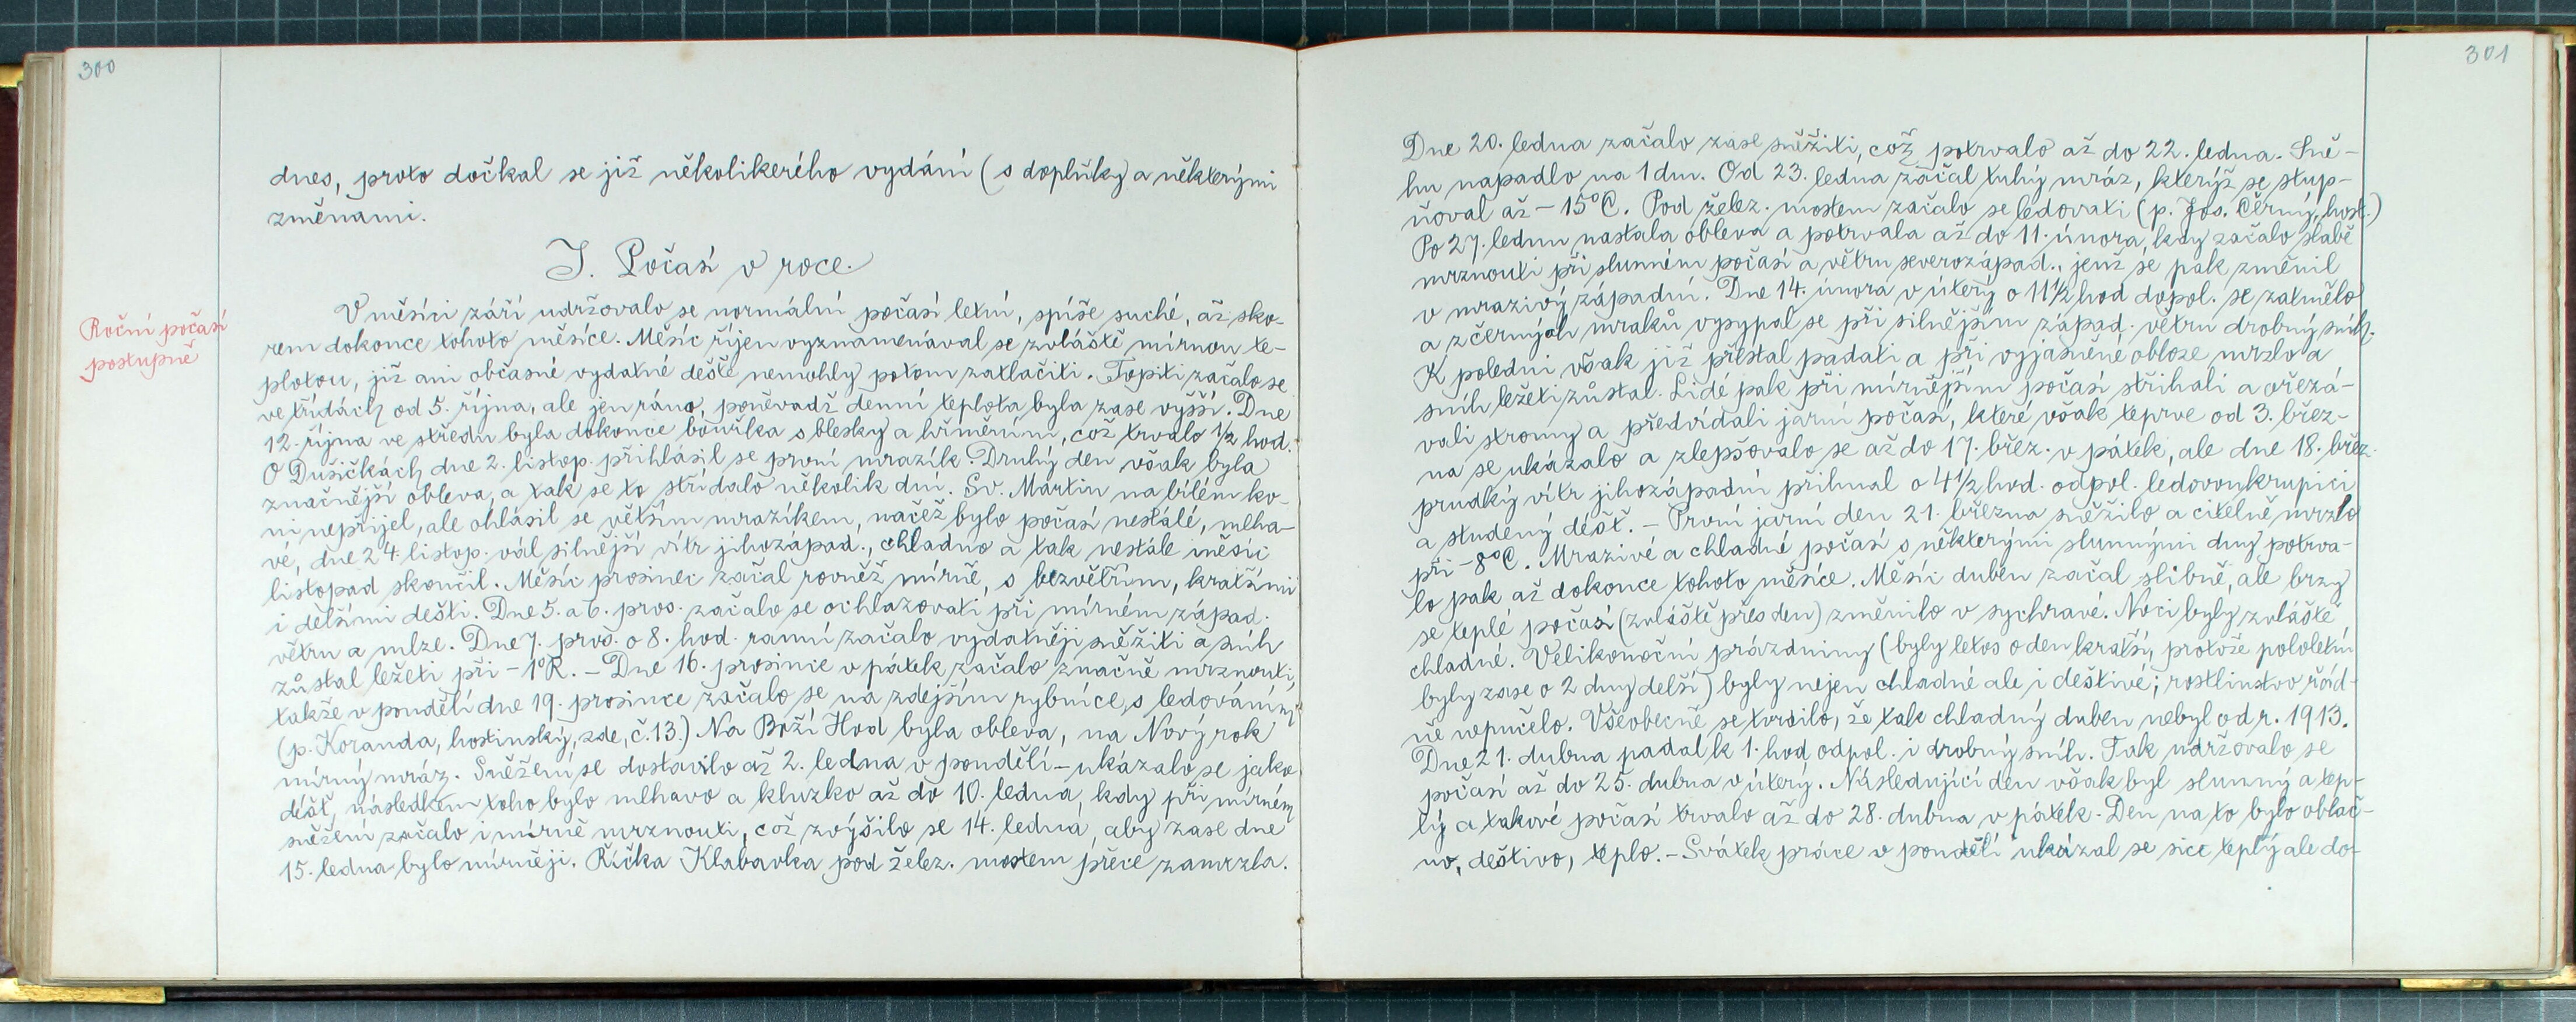 300
dnes, proto dočkal se již několikerého vydání (s doplňky a některými
změnami.
J. Počasí v roce.
Roční počasí
postupně
V měsíci září udržovalo se normální počasí letní, spíše suché, až sko-
rem dokonce tohoto měsíce. Měsíc říjen vyznamenával se zvláště mírnou te-
plotou, již ani občasné vydatné deště nemohly potom zatlačiti. Topiti začalo se
ve třídách od 5. října, ale jen ráno, poněvadž denní teplota byla zase vyšší. Dne
12. října ve středu byla dokonce bouřka s blesky a hřměním, což trvalo 1/2 hod.
O Dušičkách dne 2. listop. přihlásil se první mrazík. Druhý den však byla
značnější obleva, a tak se to střídalo několik dní. Sv. Martin na bílém ko-
ni nepřijel, ale ohlásil se větším mrazíkem, načež bylo počasí nestálé, mlha-
vé, dne 24. listop. vál silnější vítr jihozápad., chladno a tak nestále měsíc
listopad skončil. Měsíc prosinec začal rovněž mírně, s bezvětřím, kratšími
i delšími dešti. Dne 5. a 6. pros. začalo se ochlazovati při mírném západ.
větru a mlze. Dne 7. pros. o 8. hod. ranní začalo vydatněji sněžiti a sníh
zůstal ležeti při -1°R. - Dne 16. prosince v pátek začalo značně mrznouti,
takže v pondělí dne 19. prosince začalo se na zdejším rybníce s ledováním
(p. Koranda, hostinský, zde, č. 13.) Na Boží Hod byla obleva, na Nový rok
mírný mráz. Sněžení se dostavilo až 2. ledna v pondělí - ukázalo se jako
déšť, následkem toho bylo mlhavo a kluzko až do 10. ledna, kdy při mírném
sněžení začalo i mírně mrznouti, což zvýšilo se 14. ledna, aby zase dne
15. ledna bylo mírněji. Říčka Klabavka pod želez. mostem přece zamrzla.
301
Dne 20. ledna začalo zase sněžiti, což potrvalo až do 22. ledna. Sně-
hu napadlo na 1 dm. Od 23. ledna začal tuhý mráz, kterýž se stup-
ňoval až -15°C. Pod želez. mostem začalo se ledovati (p. Jos. Černý, host.)
Po 27. lednu nastala obleva a potrvala až do 11. února, kdy začalo slabě
mrznouti při slunném počasí a větru severozápad., jenž se pak změnil
v mrazivý západní. Dne 14. února v úterý o 11 1/2 hod dopol. se zatmělo
a z černých mraků vysypal se při silnějším západ. větru drobný sníh.
K poledni však již přestal padati a při vyjasněné obloze mrzlo a
sníh ležeti zůstal. Lidé pak při mírnějším počasí stříhali a ořezá-
vali stromy a předvídali jarní počasí, které však teprve od 3. břez-
na se ukázalo a zlepšovalo se až do 17. břez. v pátek, ale dne 18. břez.
prudký vítr jihozápadní přihnal o 4 1/2 hod. odpol. ledovou krupici
a studený déšť. - První jarní den 21. března sněžilo a citelně mrzlo
při -8°C. Mrazivé a chladné počasí s některými slunnými dny potrva-
lo pak až dokonce tohoto měsíce. Měsíc duben začal slibně, ale brzy
se teplé počasí (zvláště přes den) změnilo v sychravé. Noci byly zvláště
chladné. Velikonoční prázdniny (byly letos o den kratší, protože pololetní
byly zase o 2 dny delší) byly nejen chladné ale i deštivé; rostlinstvo řád-
ně nepučelo. Všeobecně se tvrdilo, že tak chladný duben nebyl od r. 1913.
Dne 21. dubna padal k 1. hod odpol. i drobný sníh. Tak udržovalo se
počasí až do 25. dubna v úterý. Následující den však byl slunný a tep-
lý a takové počasí trvalo až do 28. dubna v pátek. Den na to bylo oblač-
no, deštivo, teplo. - Svátek práce v pondělí ukázal se sice teplý ale do-